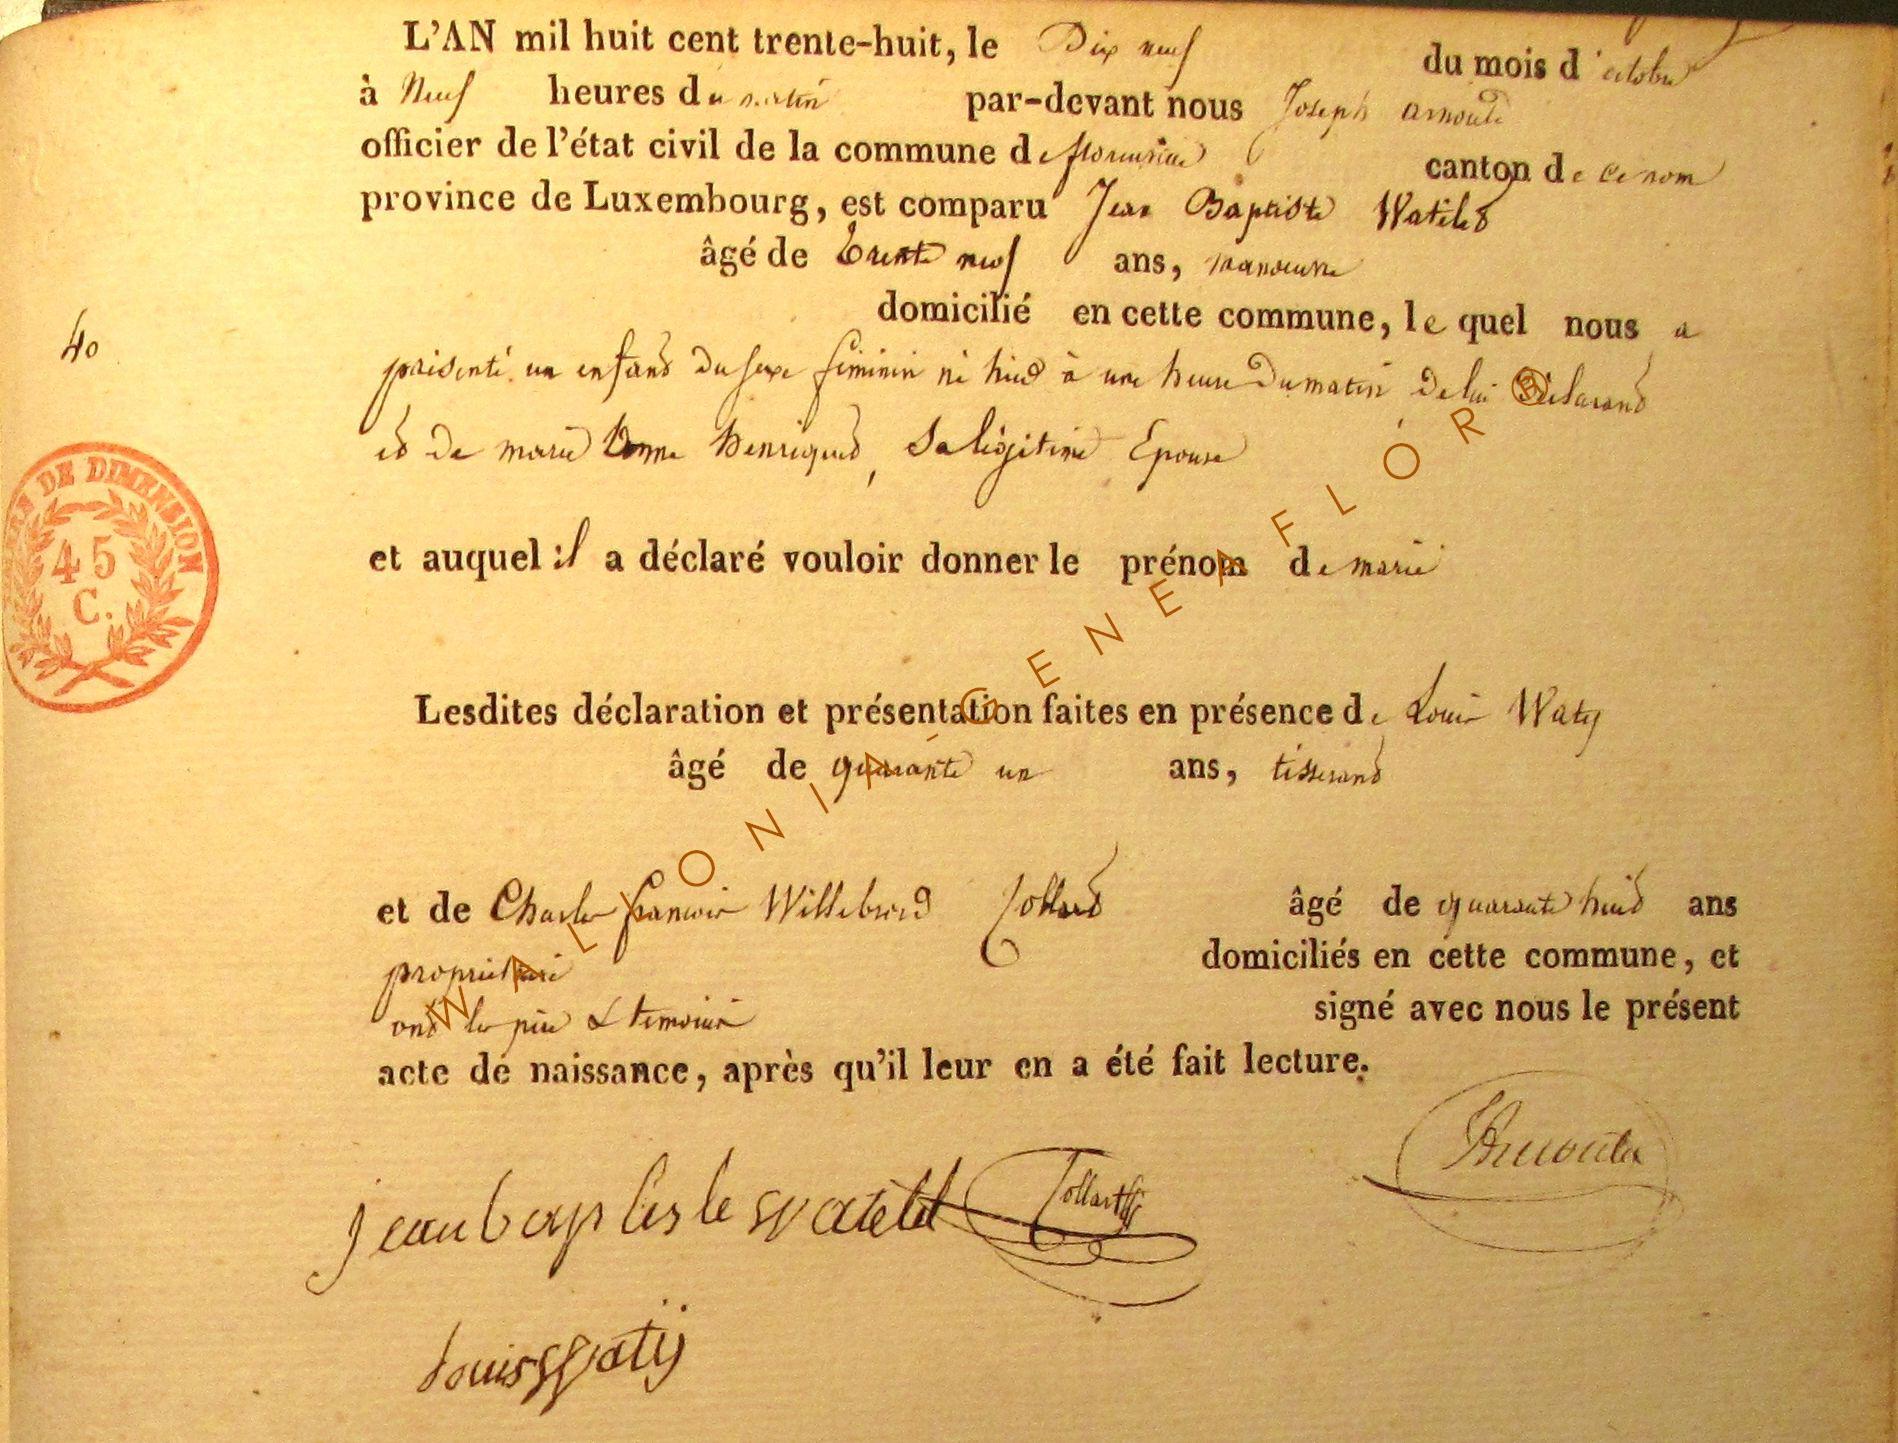 L'AN mil huit cent trente-huit, le Dix neuf du mois d'octobre
à Neuf heures du matin par-devant nous Joseph Arnould
officier de l'état civil de la commune de florenville canton de ce nom
province de Luxembourg, est comparu Jean Baptiste Watelet
âgé de trente neuf ans, manoeuvre
domicilié en cette commune, le quel nous a
40
présenté un enfant du sexe féminin né hier à une heure du matin de lui Déclarant
et de marie Henriquet, Sa légitime Epouse
TIMBRE DE DIMENSION
45
C.
et auquel il a déclaré vouloir donner le prénom de marie
Lesdites déclaration et présentation faites en présence de Louis Waty
âgé de quarante un ans, tisserand
et de Charles françois Willebrord Collard âgé de quarante huit ans
propriétaire domiciliés en cette commune, et
ont les père & temoins signé avec nous le présent
acte de naissance, après qu'il leur en a été fait lecture.
jean baptiste watelet Collart
Louis Watij
WALLONIA-GENEAFLOR®